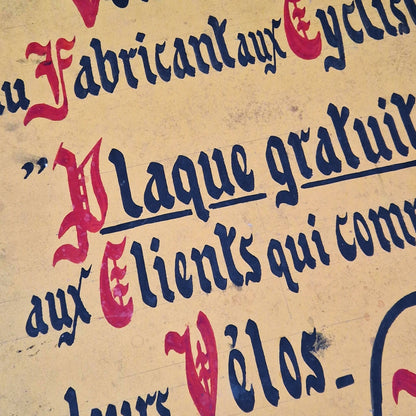 au Fabricant aux Cyclis
" Plaque gratuit
aux Clients qui comm
leurs Vélos_